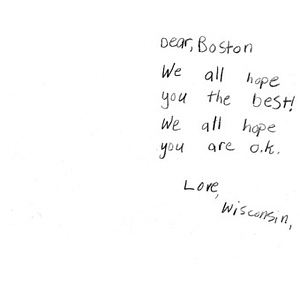 Dear, Boston
We all hope
you the best!
We all hope
you are o.k.
Love,
Wisconsin,